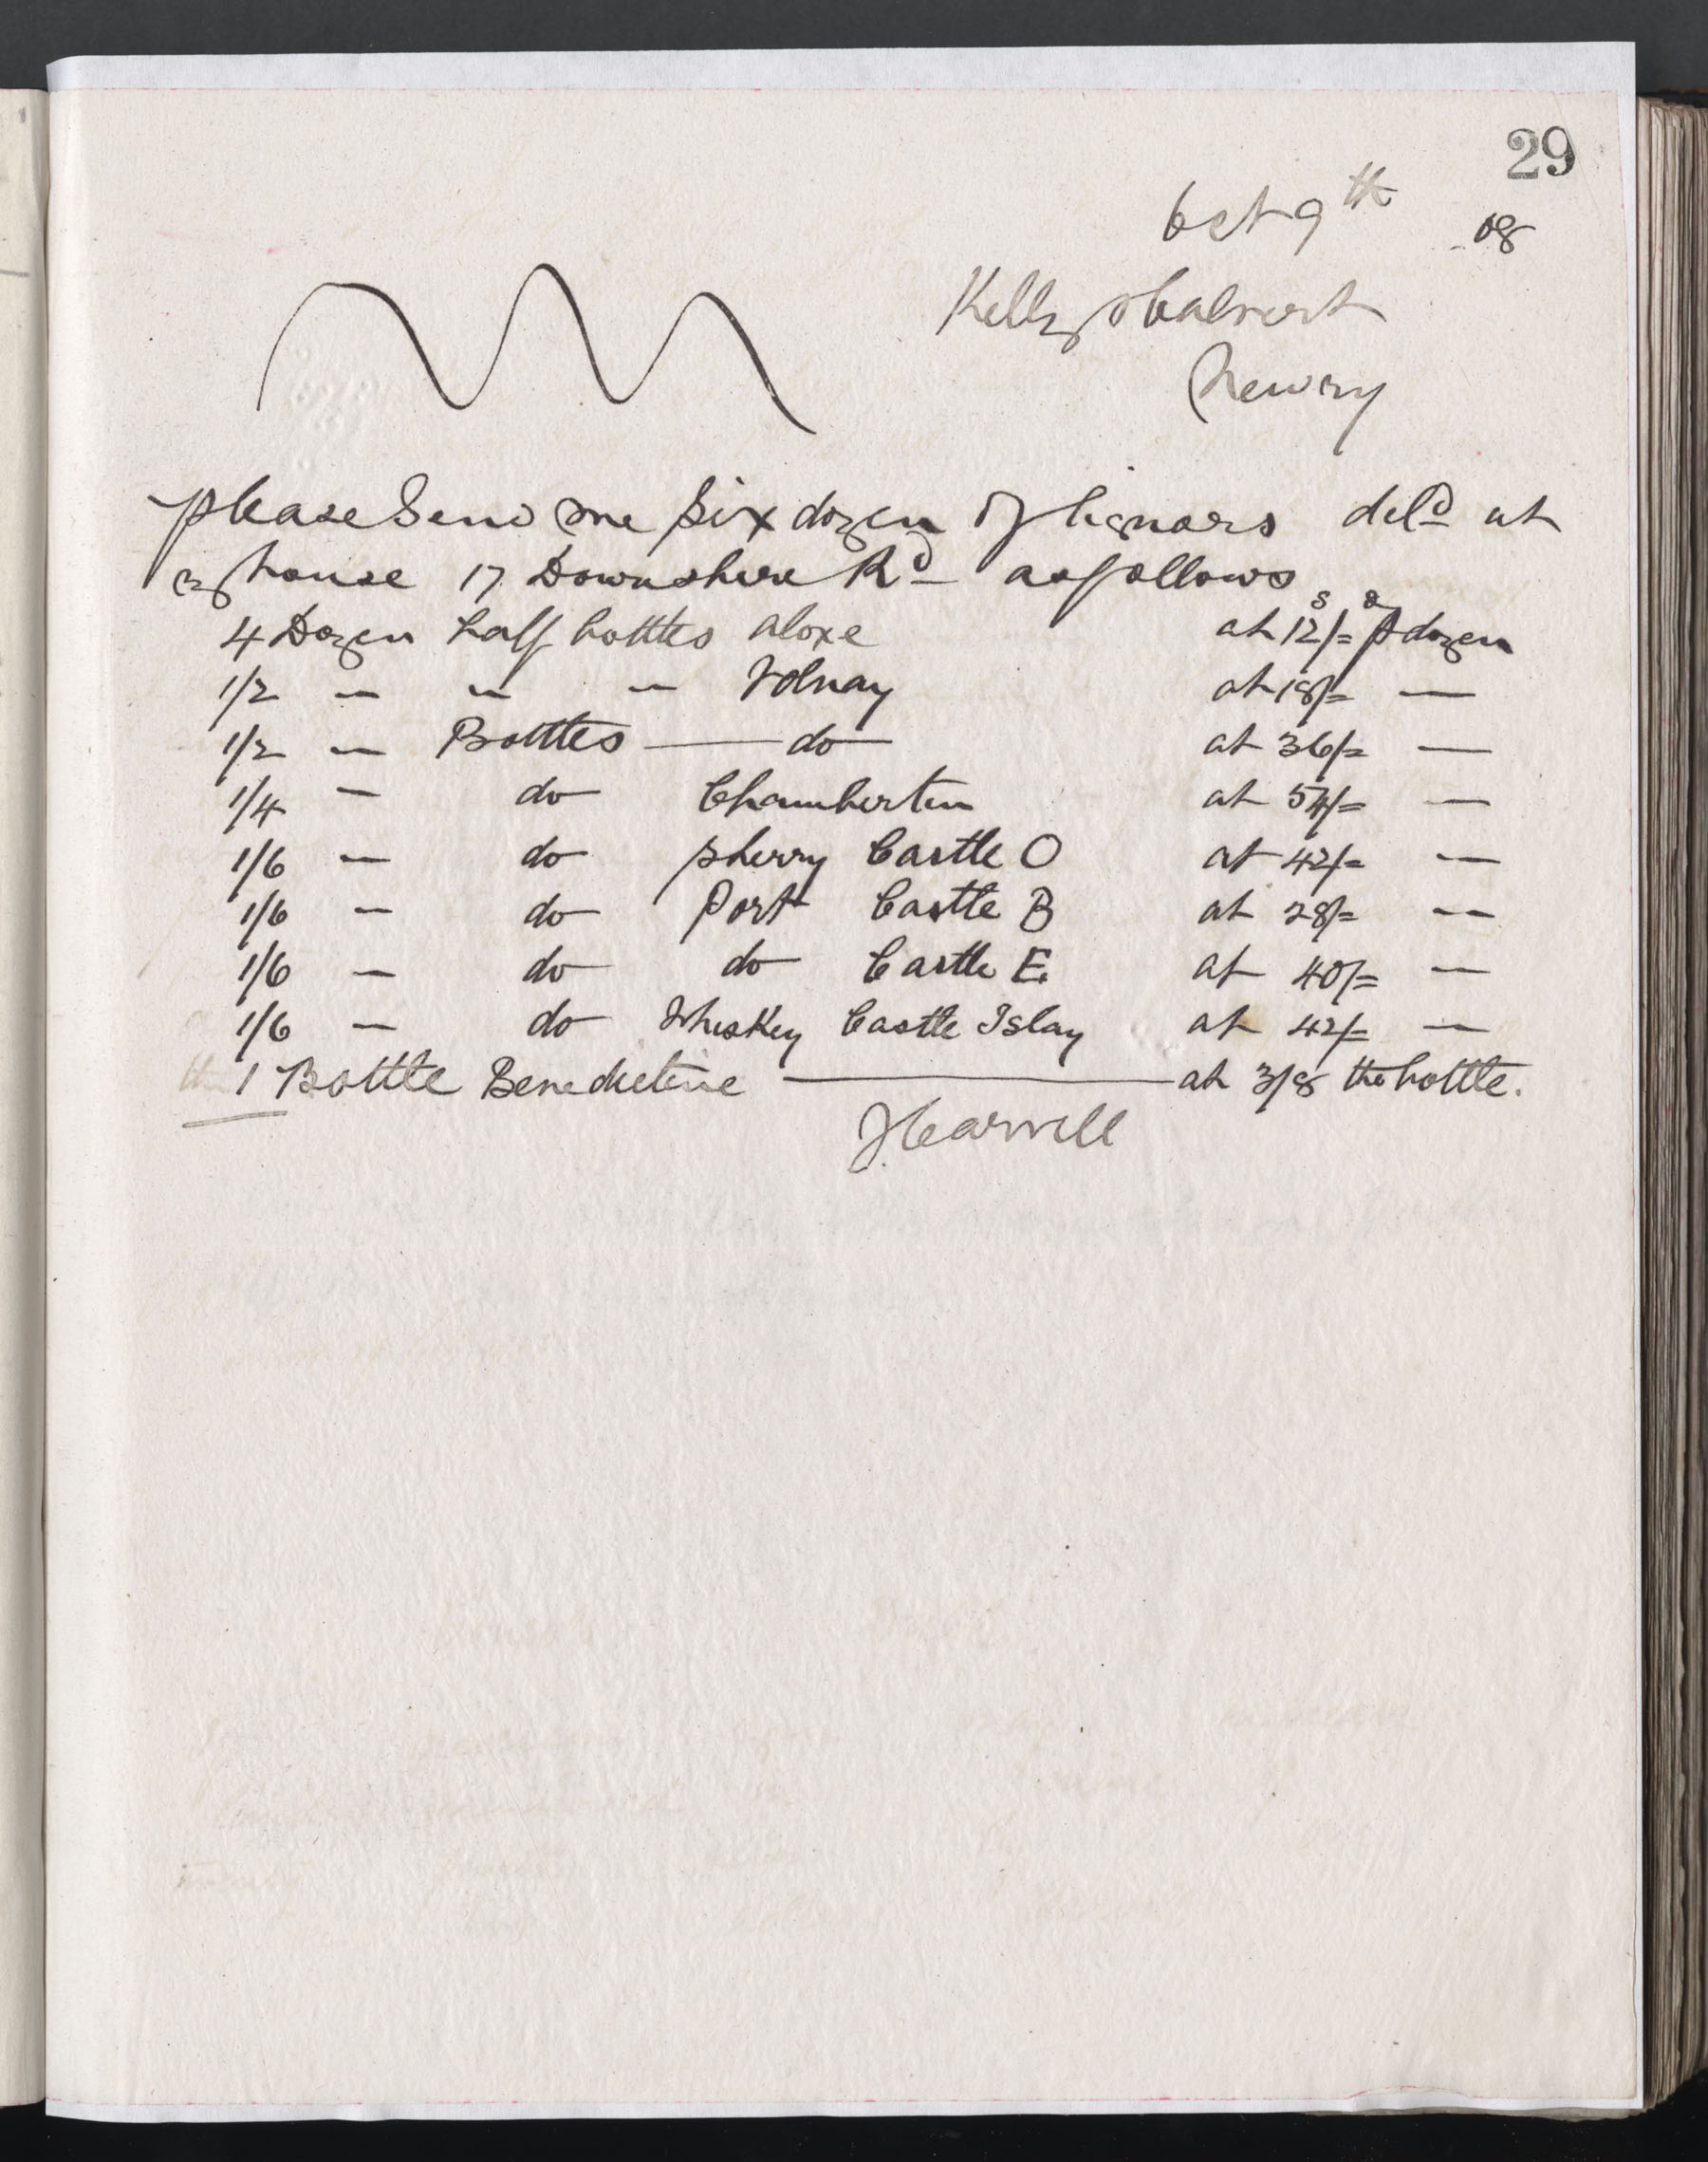 29
Oct 9th 08
Kelly & Calvert
Newry
please Send me Six dozen of liquors deld at
my house 17 Downshire Rd as follows
4 Dozen half bottles aloxe at 12s/=d p dozen
1/2 — — — Volnay at 18/= —
1/2 — Bottles — do — at 36/= —
1/4 — do Chambertin at 54/= —
1/6 — do Sherry Castle O at 42/= —
1/6 — do Port Castle B at 28/= —
1/6 — do do Castle E at 40/= —
1/6 — do Whiskey Castle Islay at 42/= —
1 Bottle Benedictine — at 3/8 the bottle.
J Carvill